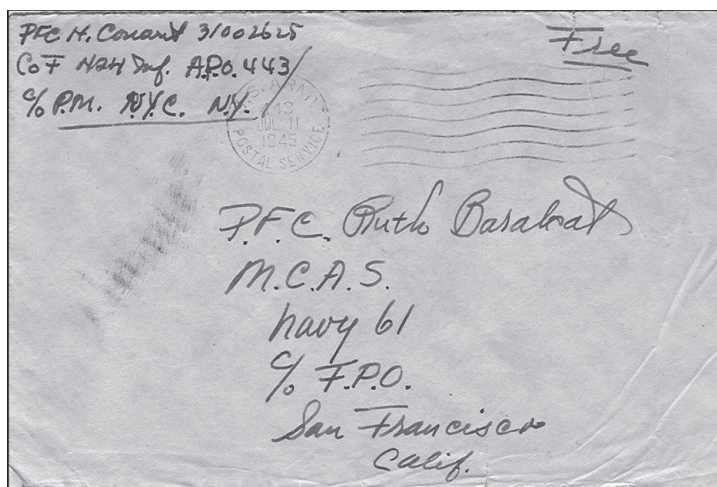 PFC H. Conant 31002625
Co F 424 Inf. A.P.O. 443
c/o P.M. N.Y.C. N.Y.
Free
U.S. ARMY
JUL 11
1945
POSTAL SERVICE
P.F.C. Ruth Barakat
M.C.A.S.
Navy 61
c/o F.P.O.
San Francisco
Calif.